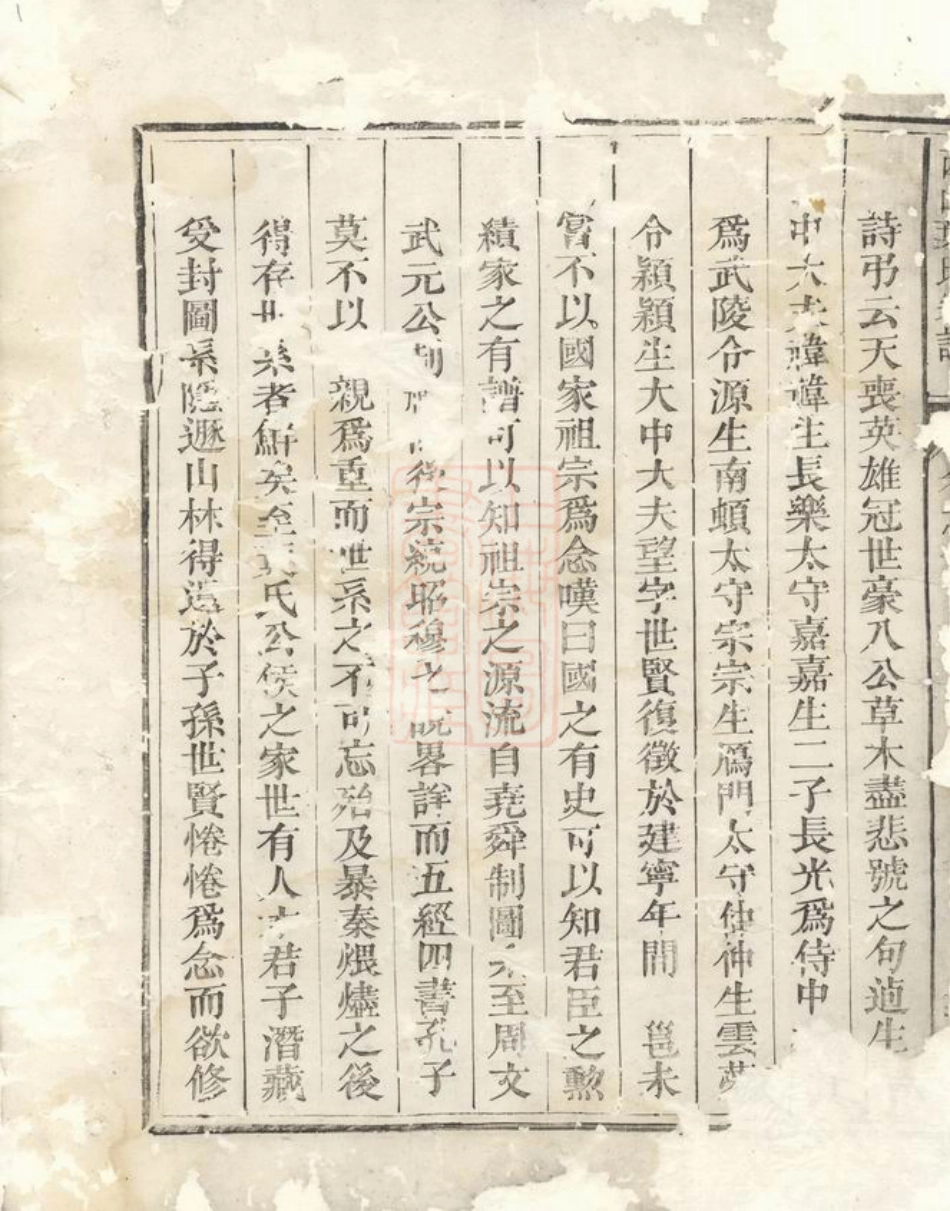 詩弔云天喪英雄冠世豪八公草木盡悲號之句逌生
中大夫禕禕生長樂太守嘉嘉生二子長光爲侍中
爲武陵令源生南頓太守宗宗生鴈門太守仲仲生雲
令穎穎生大中大夫望字世賢復徵於建寧年間 邕未
嘗不以國家祖宗爲念嘆曰國之有史可以知君臣之勲
績家之有譜可以知祖宗之源流自堯舜制圖至周文
武元公制後宗統昭穆之說畧詳而五經四書孔子
莫不以 親爲重而世系之不可忘殆及暴秦煨燼之後
得存世系者鮮矣至氏公侯之家世有人才君子潛藏
受封圖系隱遯山林得遺於子孫世賢惓惓爲念而欲修